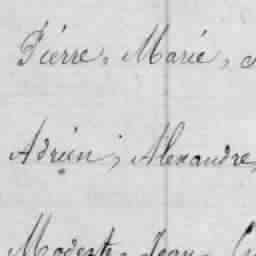 Pierre, Marie,
Adrien, Alexandre,
Modeste, Jean,